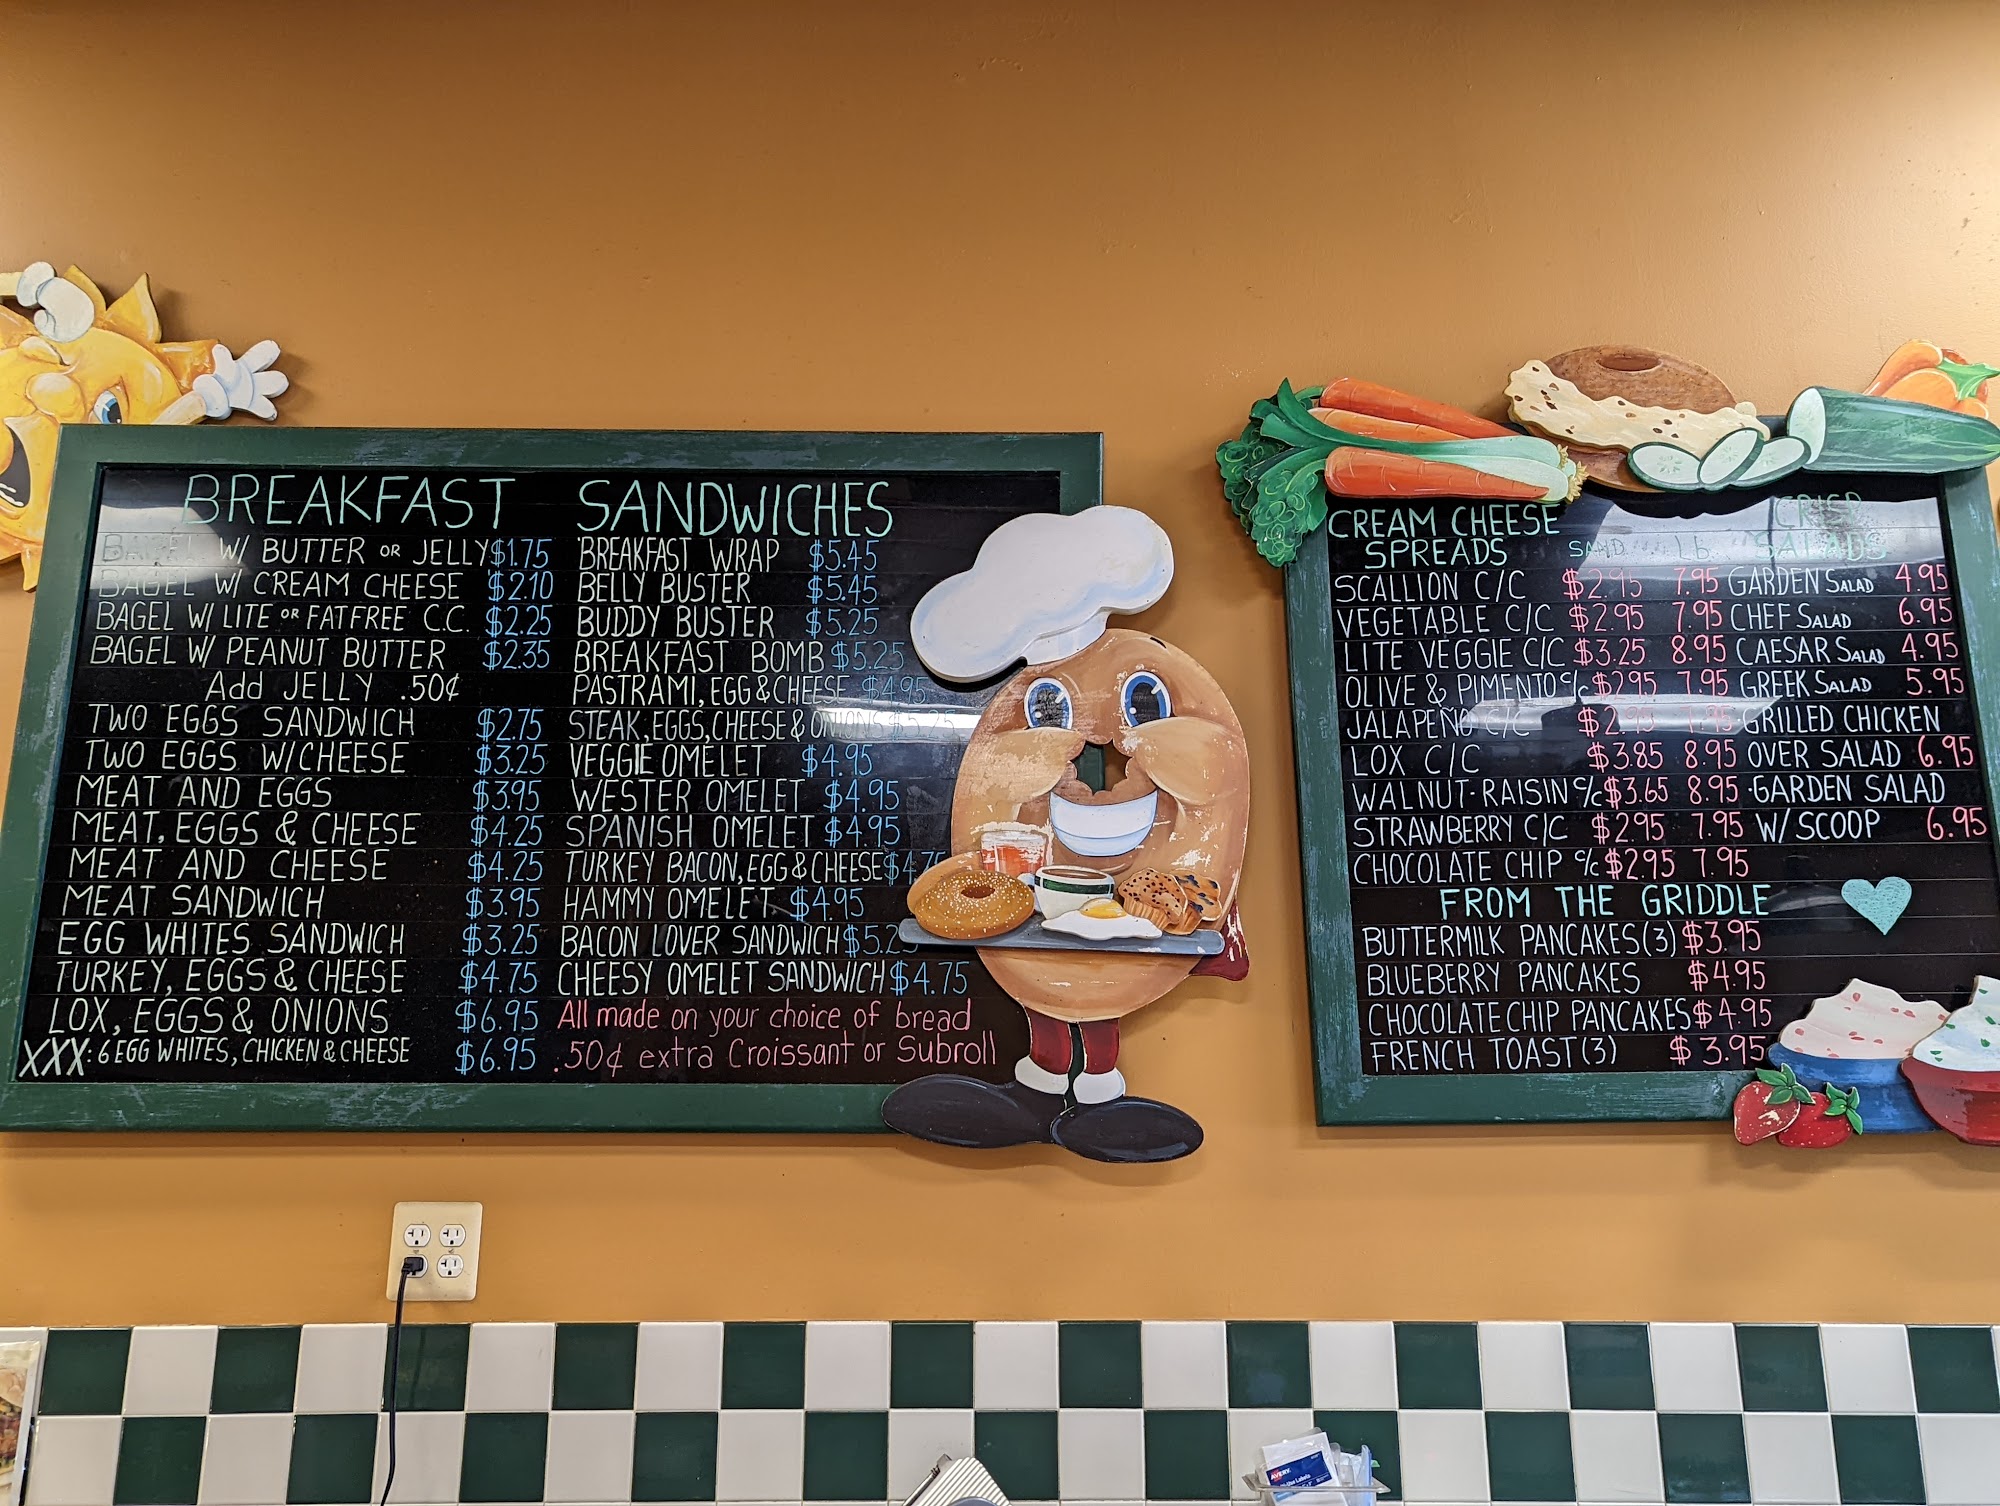 BREAKFAST SANDWICHES
BAGEL W/ BUTTER OR JELLY $1.75
BAGEL W/ CREAM CHEESE $2.10
BAGEL W/ LITE OR FATFREE C.C. $2.25
BAGEL W/ PEANUT BUTTER $2.35
Add JELLY .50¢
TWO EGGS SANDWICH $2.75
TWO EGGS W/CHEESE $3.25
MEAT AND EGGS $3.95
MEAT, EGGS & CHEESE $4.25
MEAT AND CHEESE $4.25
MEAT SANDWICH $3.95
EGG WHITES SANDWICH $3.25
TURKEY, EGGS & CHEESE $4.75
LOX, EGGS & ONIONS $6.95
XXX: 6 EGG WHITES, CHICKEN & CHEESE $6.95
BREAKFAST WRAP $5.45
BELLY BUSTER $5.45
BUDDY BUSTER $5.25
BREAKFAST BOMB $5.25
PASTRAMI, EGG & CHEESE $4.95
STEAK, EGGS, CHEESE & ONIONS $5.25
VEGGIE OMELET $4.95
WESTER OMELET $4.95
SPANISH OMELET $4.95
TURKEY BACON, EGG & CHEESE $4.75
HAMMY OMELET $4.95
BACON LOVER SANDWICH $5.25
CHEESY OMELET SANDWICH $4.75
All made on your choice of bread
.50¢ extra Croissant or Subroll
CREAM CHEESE
SPREADS SAND Lb
SCALLION C/C $2.95 7.95
VEGETABLE C/C $2.95 7.95
LITE VEGGIE C/C $3.25 8.95
OLIVE & PIMENTO C/C $2.95 7.95
JALAPEÑO C/C $2.95 7.95
LOX C/C $3.85 8.95
WALNUT-RAISIN C/C $3.65 8.95
STRAWBERRY C/C $2.95 7.95
CHOCOLATE CHIP C/C $2.95 7.95
CRISP
SALADS
GARDEN SALAD 4.95
CHEF SALAD 6.95
CAESAR SALAD 4.95
GREEK SALAD 5.95
GRILLED CHICKEN
OVER SALAD 6.95
GARDEN SALAD
W/ SCOOP 6.95
FROM THE GRIDDLE
BUTTERMILK PANCAKES (3) $3.95
BLUEBERRY PANCAKES $4.95
CHOCOLATE CHIP PANCAKES $4.95
FRENCH TOAST (3) $3.95
AVERY